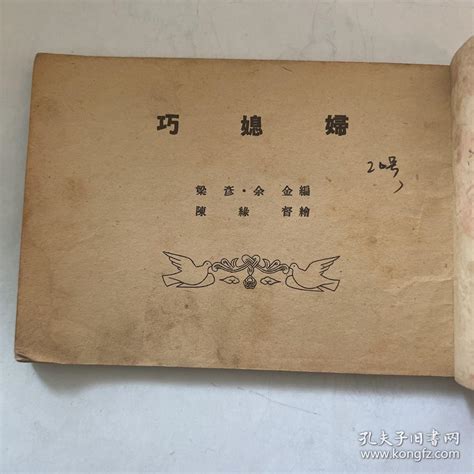 巧媳婦
20号
梁彦·余金編
陳緣督繪
孔夫子旧书网
www.kongfz.com